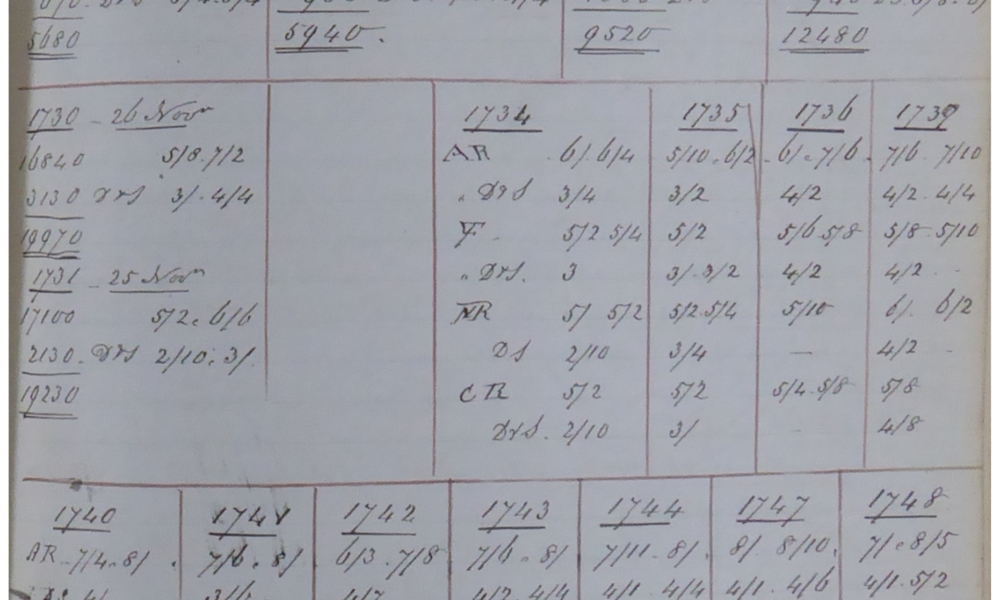 5680 5940. 9520 12480
1730 - 26 Novr
16840 5/8.7/2
3130 Drs 3/. 4/4
19970
1731 - 25 Novr
17100 5/2. 6/6
2130. Drs 2/10. 3/.
19230
1734 1735 1736 1739
AR 6/. 6/4 5/10. 6/2 6/. 7/6. 7/6 7/10
" Drs 3/4 3/2 4/2 4/2. 4/4
F. 5/2 5/4 5/2 5/6 5/8 5/8 5/10
" Drs. 3 3/. 3/2 4/2 4/2
R 5/ 5/2 5/2 5/4 5/10 6/. 6/2
DS 2/10 3/4 — 4/2
CR 5/2 5/2 5/4. 5/8 5/8
Drs. 2/10 3/ — 4/8
1740 1741 1742 1743 1744 1747 1748
AR. 7/4. 8/. 7/6. 8/ 6/3. 7/8 7/6. 8/ 7/11. 8/. 8/. 8/10. 7/. 8/5
4/2. 4/4 4/1. 4/4 4/1. 4/6 4/1. 5/2